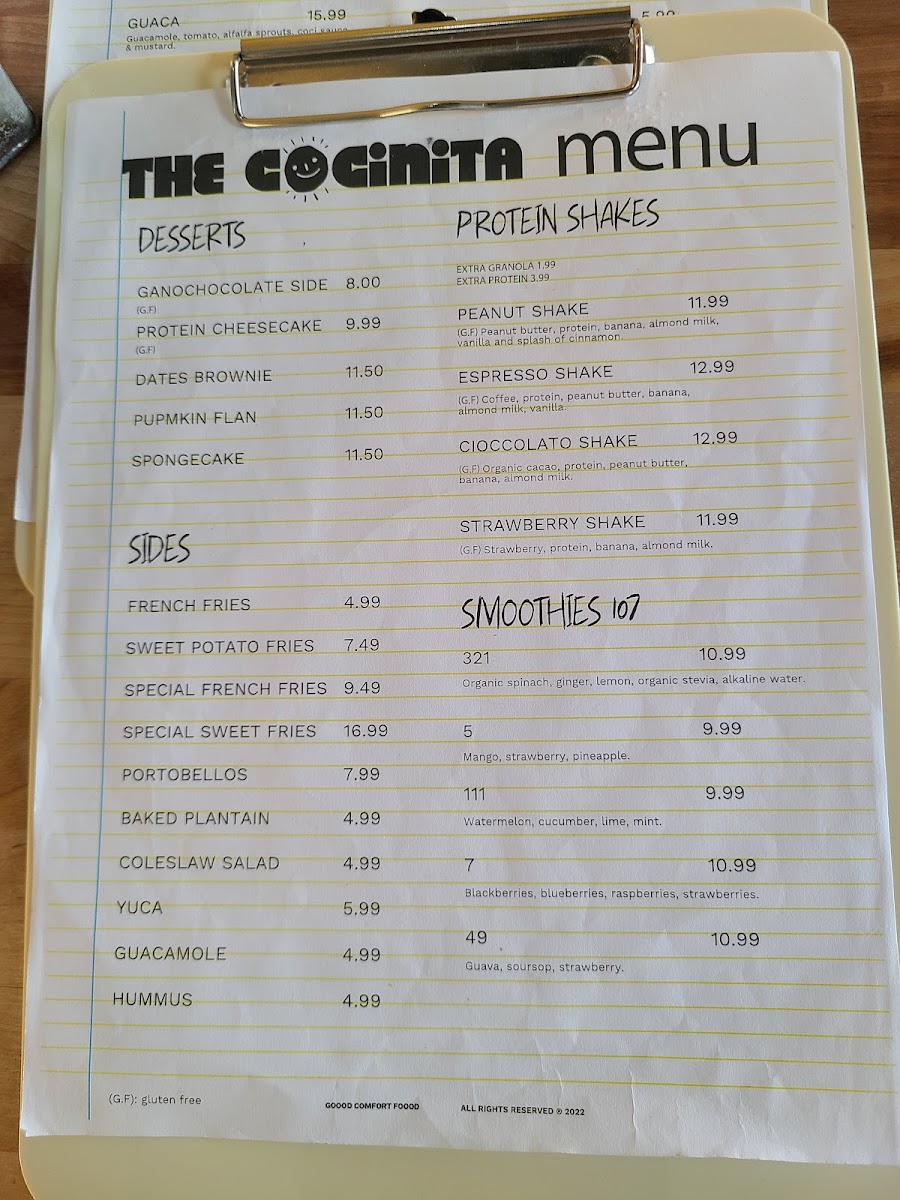 GUACA 15.99
Guacamole, tomato, alfalfa sprouts, coci sauce
& mustard.
THE COCiNiTA menu
DESSERTS
GANOCHOCOLATE SIDE 8.00
(G.F)
PROTEIN CHEESECAKE 9.99
(G.F)
DATES BROWNIE 11.50
PUPMKIN FLAN 11.50
SPONGECAKE 11.50
SIDES
FRENCH FRIES 4.99
SWEET POTATO FRIES 7.49
SPECIAL FRENCH FRIES 9.49
SPECIAL SWEET FRIES 16.99
PORTOBELLOS 7.99
BAKED PLANTAIN 4.99
COLESLAW SALAD 4.99
YUCA 5.99
GUACAMOLE 4.99
HUMMUS 4.99
PROTEIN SHAKES
EXTRA GRANOLA 1.99
EXTRA PROTEIN 3.99
PEANUT SHAKE 11.99
(G.F) Peanut butter, protein, banana, almond milk,
vanilla and splash of cinnamon.
ESPRESSO SHAKE 12.99
(G.F) Coffee, protein, peanut butter, banana,
almond milk, vanilla.
CIOCCOLATO SHAKE 12.99
(G.F) Organic cacao, protein, peanut butter,
banana, almond milk.
STRAWBERRY SHAKE 11.99
(G.F) Strawberry, protein, banana, almond milk.
SMOOTHIES 107
321 10.99
Organic spinach, ginger, lemon, organic stevia, alkaline water.
5 9.99
Mango, strawberry, pineapple.
111 9.99
Watermelon, cucumber, lime, mint.
7 10.99
Blackberries, blueberries, raspberries, strawberries.
49 10.99
Guava, soursop, strawberry.
(G.F): gluten free
GOOOD COMFORT FOOOD
ALL RIGHTS RESERVED ® 2022